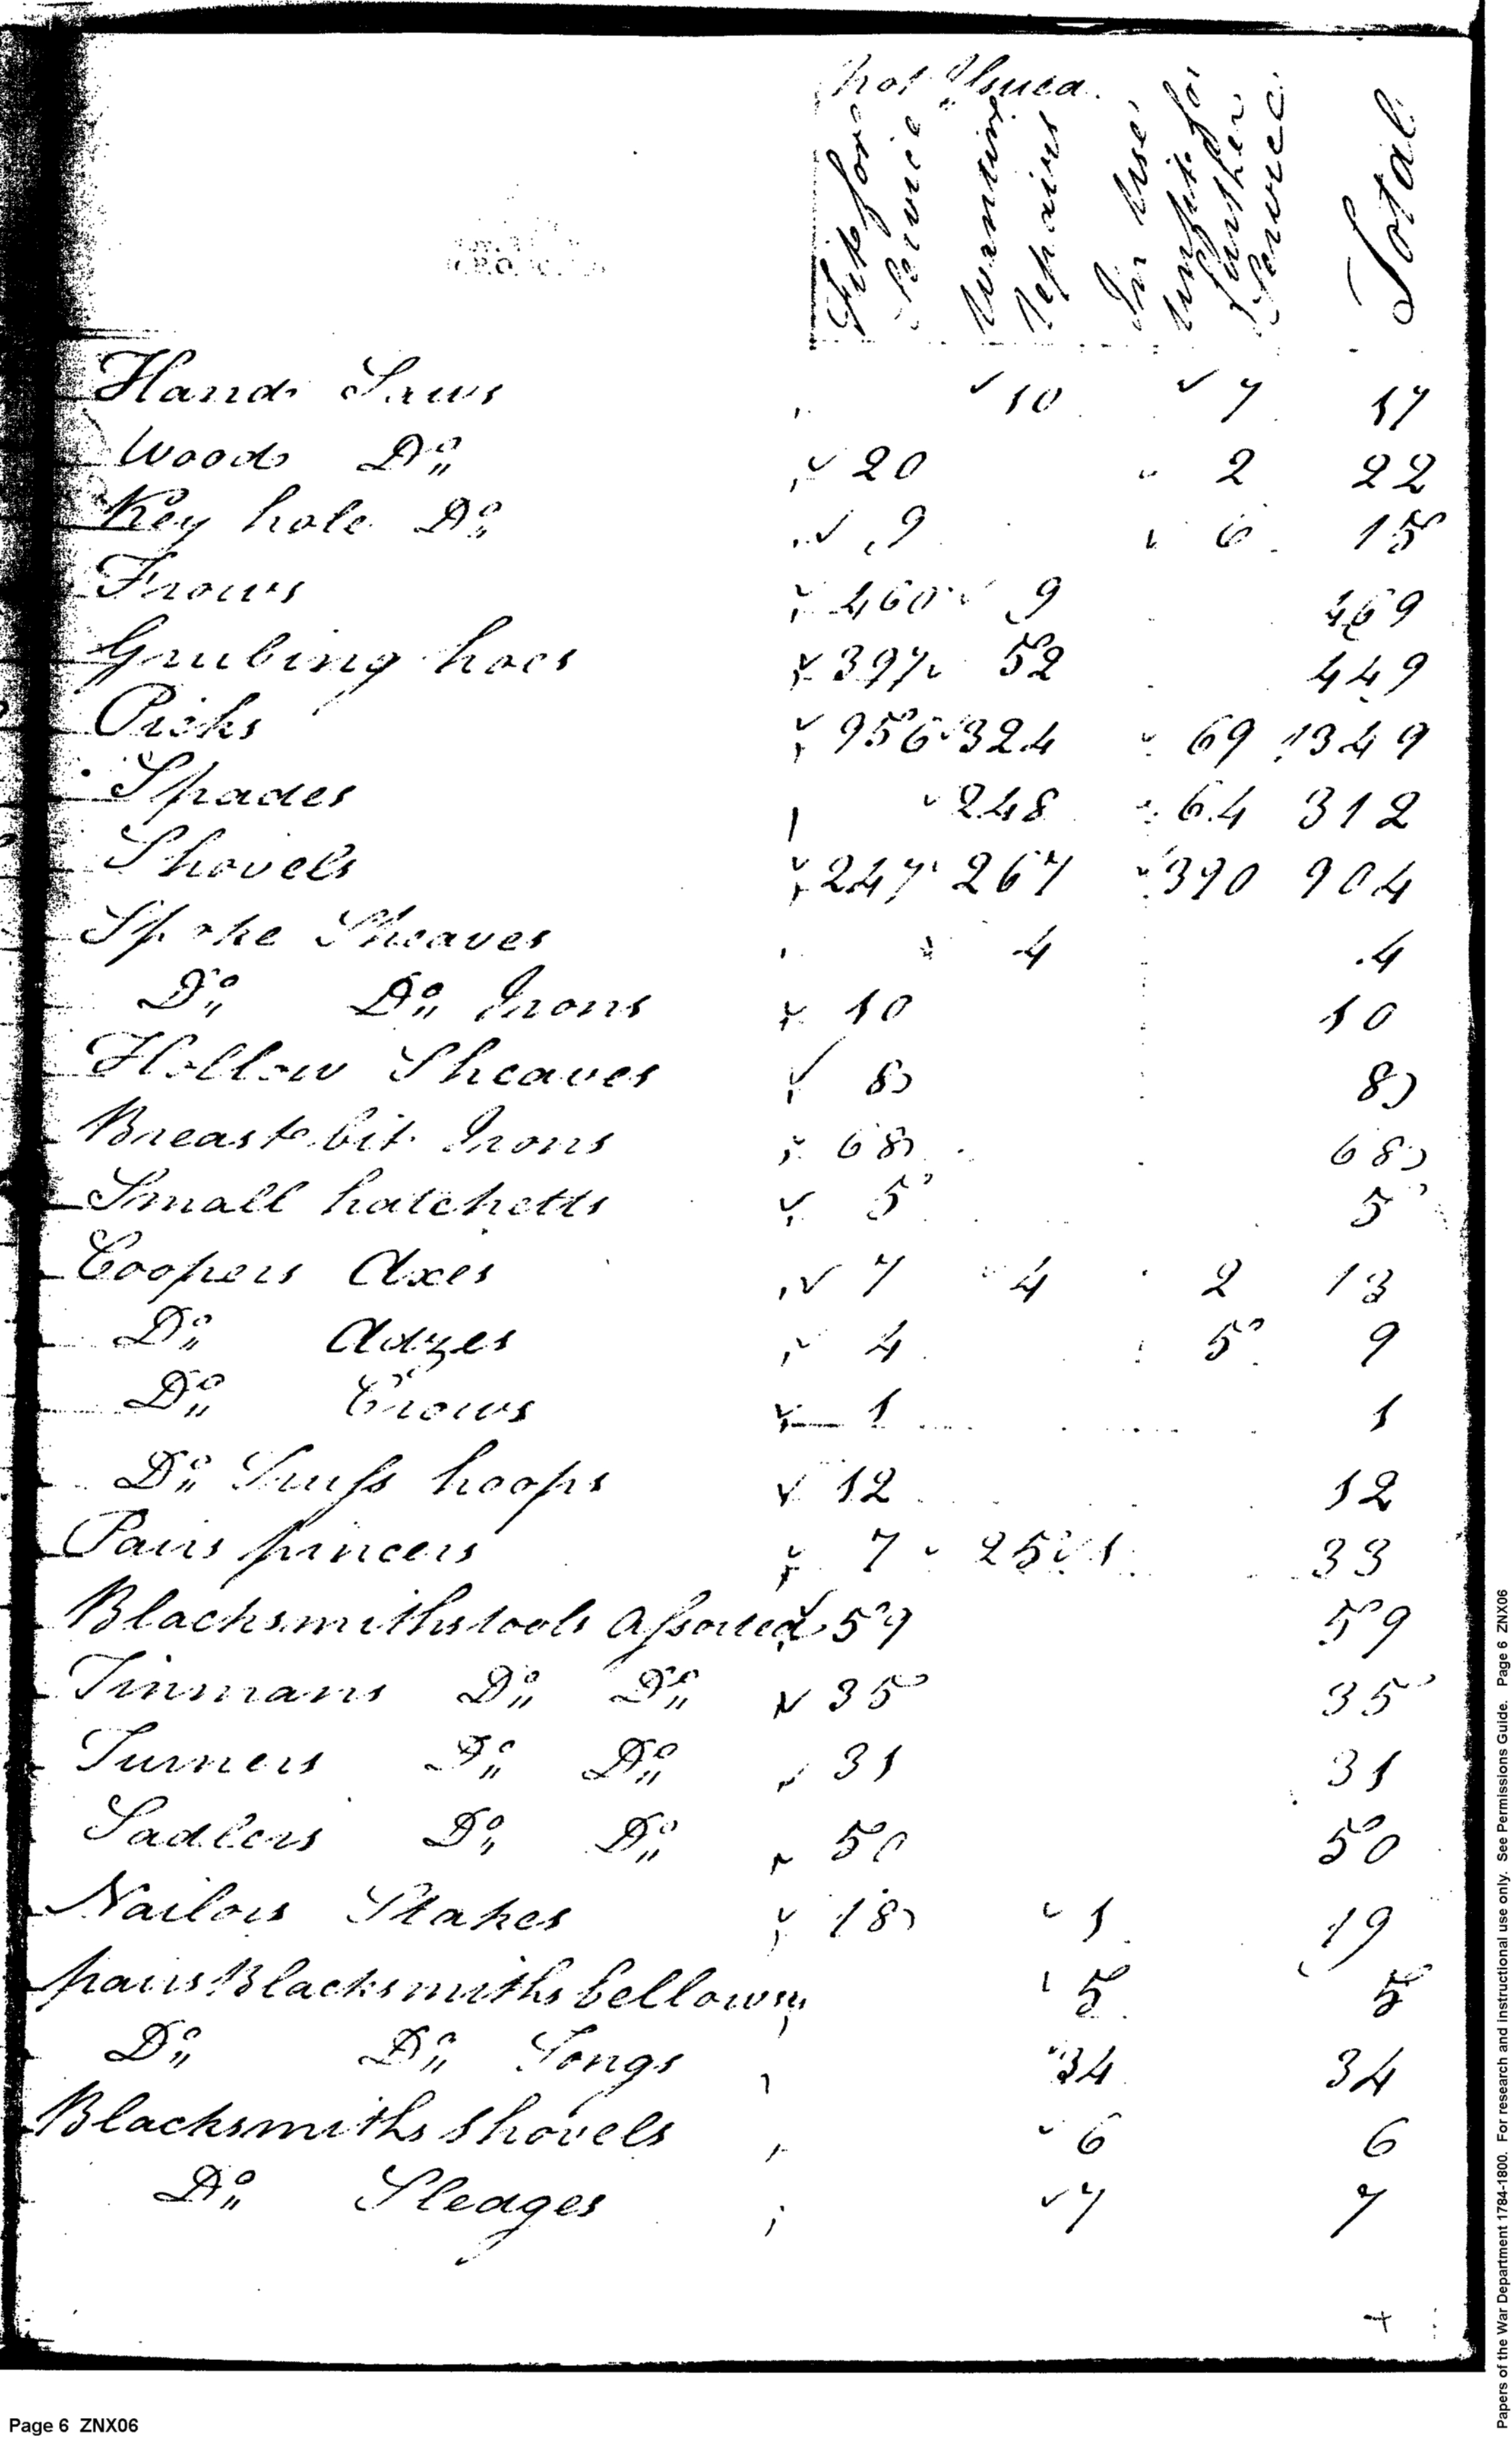 not Issued.
Fit for Service
Wanting repairs
In Use
unfit for further Service
Total
Hand Saws 10 7 17
Wood Do 20 2 22
Key hole Do 9 6 15
Frows 460 9 469
Grubing hoes 397 52 449
Picks 956 324 69 1349
Spades 248 64 312
Shovels 247 267 390 904
Spoke Sheaves 4 4
Do Do Irons 10 10
Hollow Sheaves 8 8
Breast bit Irons 68 68
Small hatchetts 5 5
Coopers Axes 7 4 2 13
Do Adzes 4 5 9
Do Crows 1 1
Do Truss hoops 12 12
Pairs pincers 7 25 1 33
Blacksmiths tools Assorted 59 59
Tinmans Do Do 35 35
Turners Do Do 31 31
Sadlers Do Do 50 50
Nailors Stakes 18 1 19
pairs Blacksmiths bellows 5 5
Do Do Tongs 34 34
Blacksmiths Shovels 6 6
Do Sledges 7 7
+
Page 6 ZNX06
Papers of the War Department 1784-1800. For research and instructional use only. See Permissions Guide. Page 6 ZNX06